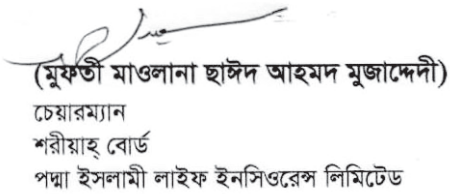 (মুফতী মাওলানা ছাঈদ আহমদ মুজাদ্দেদী)
চেয়ারম্যান
শরীয়াহ্ বোর্ড
পদ্মা ইসলামী লাইফ ইনসিওরেন্স লিমিটেড